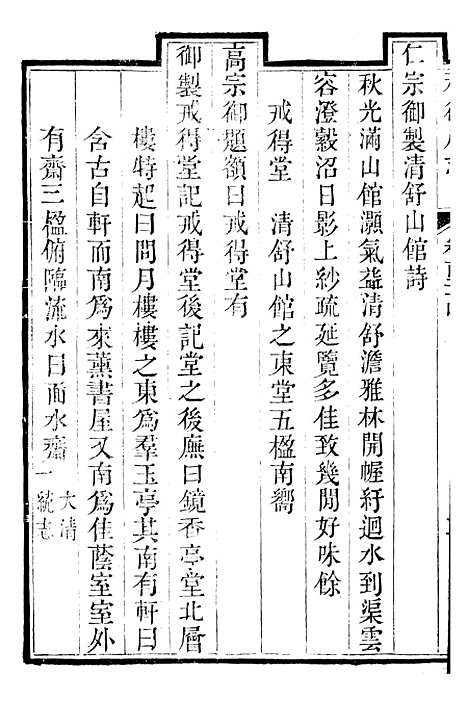 仁宗御製清舒山館詩
秋光滿山館灝氣益清舒澹雅林開幄紆迴水到渠雲
容澄縠沼日影上紗疏延覽多佳致幾閒好味餘
戒得堂　清舒山館之東堂五楹南嚮
高宗御題額曰戒得堂有
御製戒得堂記戒得堂後記堂之後廡曰鏡香亭堂北層
樓特起曰問月樓樓之東爲羣玉亭其南有軒曰
含古自軒而南爲來薰書屋又南爲佳蔭室室外
有齋三楹俯臨流水曰面水齋大清一
統志